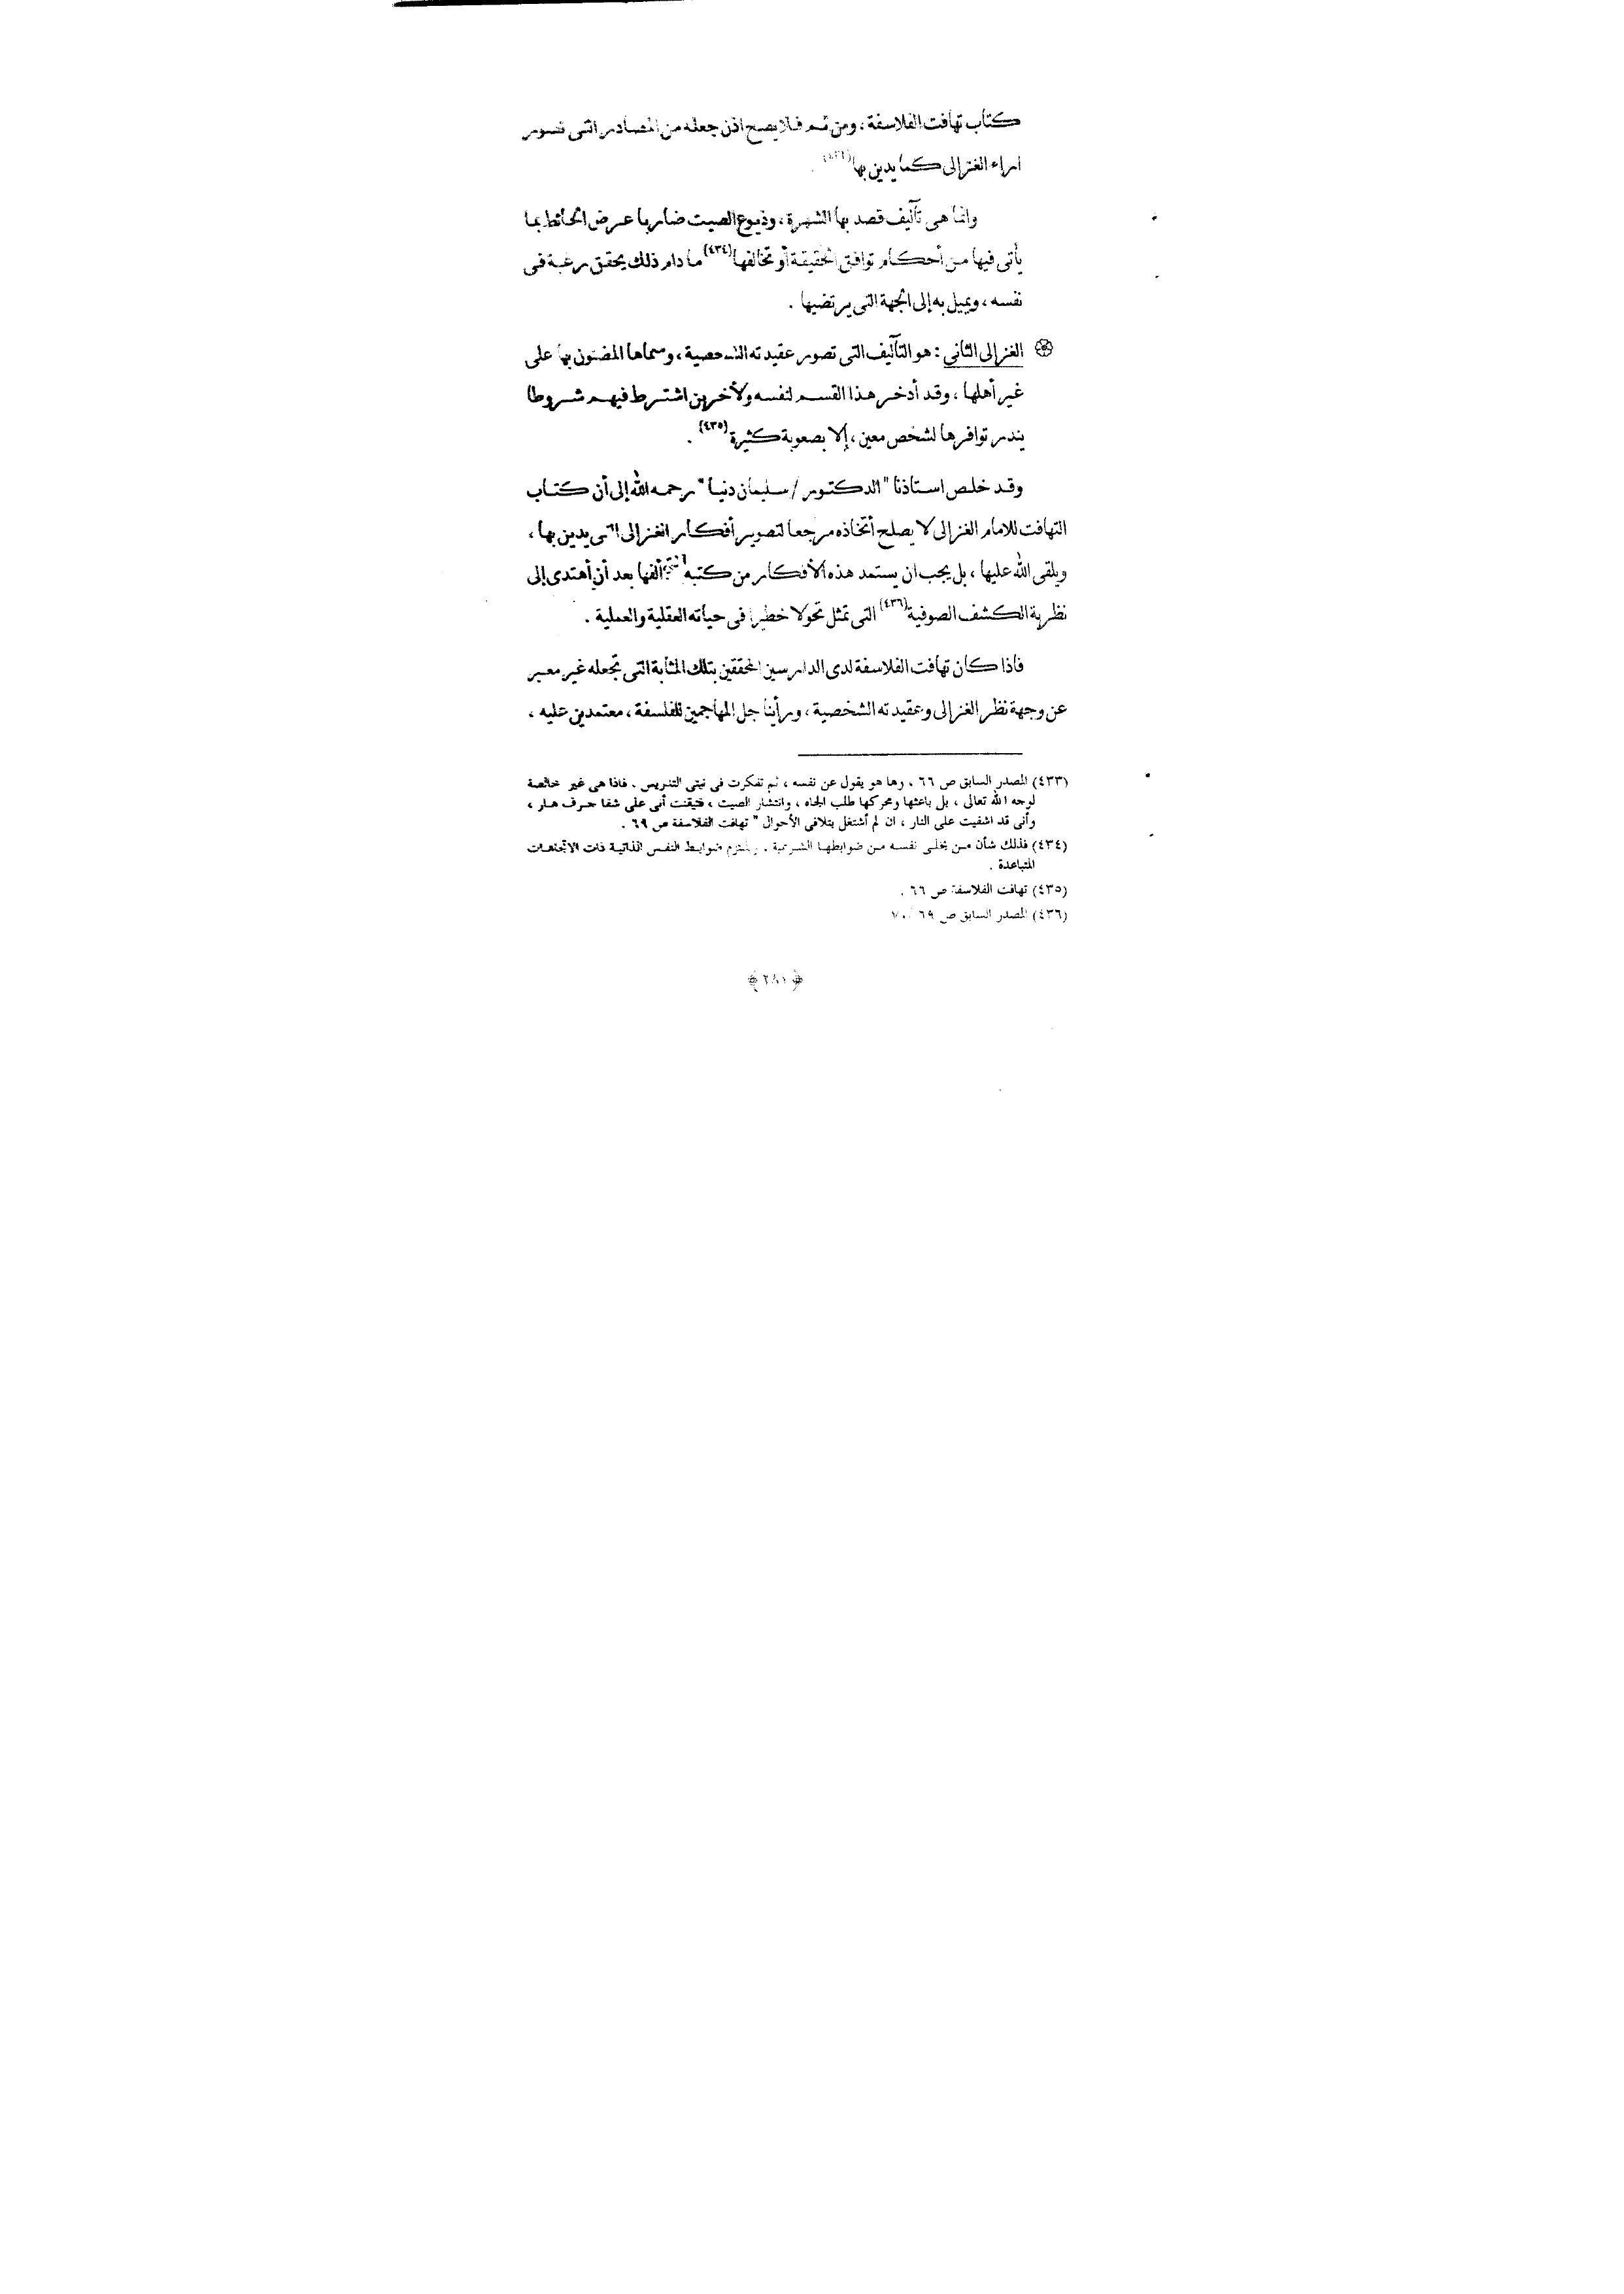 كتاب تهافت الفلاسفة ، ومن ثم فلا يصح اذن جعله من المصادر التى تصور
اراء الغزالى كما يدين بها .
وانما هى تآليف قصد بها الشهرة ، وذيوع الصيت ضاربا عرض الحائط بما
يأتى فيها من أحكام توافق الحقيقة أو تخالفها (٤٣٤) ما دام ذلك يحقق رغبة فى
نفسه ، ويميل به إلى الجهة التى يرتضيها .
الغزالى الثانى : هو التآليف التى تصور عقيدته الشخصية ، وسماها المضنون بها على
غير أهلها ، وقد أدخر هذا القسم لنفسه ولأخرين اشترط فيهم شروطا
يندر توافرها لشخص معين ، إلا بصعوبة كثيرة (٤٣٥) .
وقد خلص استاذنا " الدكتور / سليمان دنيا " رحمه الله إلى أن كتاب
التهافت للامام الغزالى لا يصلح أتخاذه مرجعا لتصوير أفكار الغزالى التى يدين بها ،
ويلقى الله عليها ، بل يجب ان يستمد هذه الأفكار من كتبه التى ألفها بعد أن أهتدى إلى
نظرية الكشف الصوفية (٤٣٦) التى تمثل تحولا خطيرا فى حياته العقلية والعملية .
فاذا كان تهافت الفلاسفة لدى الدارسين المحققين بتلك المثابة التى تجعله غير معبر
عن وجهة نظر الغزالى وعقيدته الشخصية ، ورأينا جل المهاجمين للفلسفة ، معتمدين عليه ،
(٤٣٣) المصدر السابق ص ٦٦ ، وها هو يقول عن نفسه ، ثم تفكرت فى نيتى التدريس . فاذا هى غير خالصة
لوجه الله تعالى ، بل باعثها ومحركها طلب الجاه ، وانتشار الصيت ، فتيقنت أنى على شفا جرف هار ،
وأنى قد اشفيت على النار ، ان لم أشتغل بتلافى الأحوال " تهافت الفلاسفة ص ٦٩ .
(٤٣٤) فذلك شأن من يخلى نفسه من ضوابطها الشرعية . ويلتزم ضوابط النفس الذاتية ذات الاتجاهات
المتباعدة .
(٤٣٥) تهافت الفلاسفة ص ٦٦ .
(٤٣٦) المصدر السابق ص ٦٩ ، ٧٠
﴿ ٢٨١ ﴾